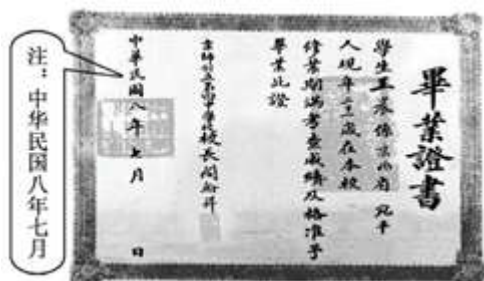 畢業證書
學生王係京兆省宛平
人現年歲在本校
修業期滿考查成績及格准予
畢業此證
京師公立中學校校長閻昇
中華民國八年七月 日
注：中华民国八年七月